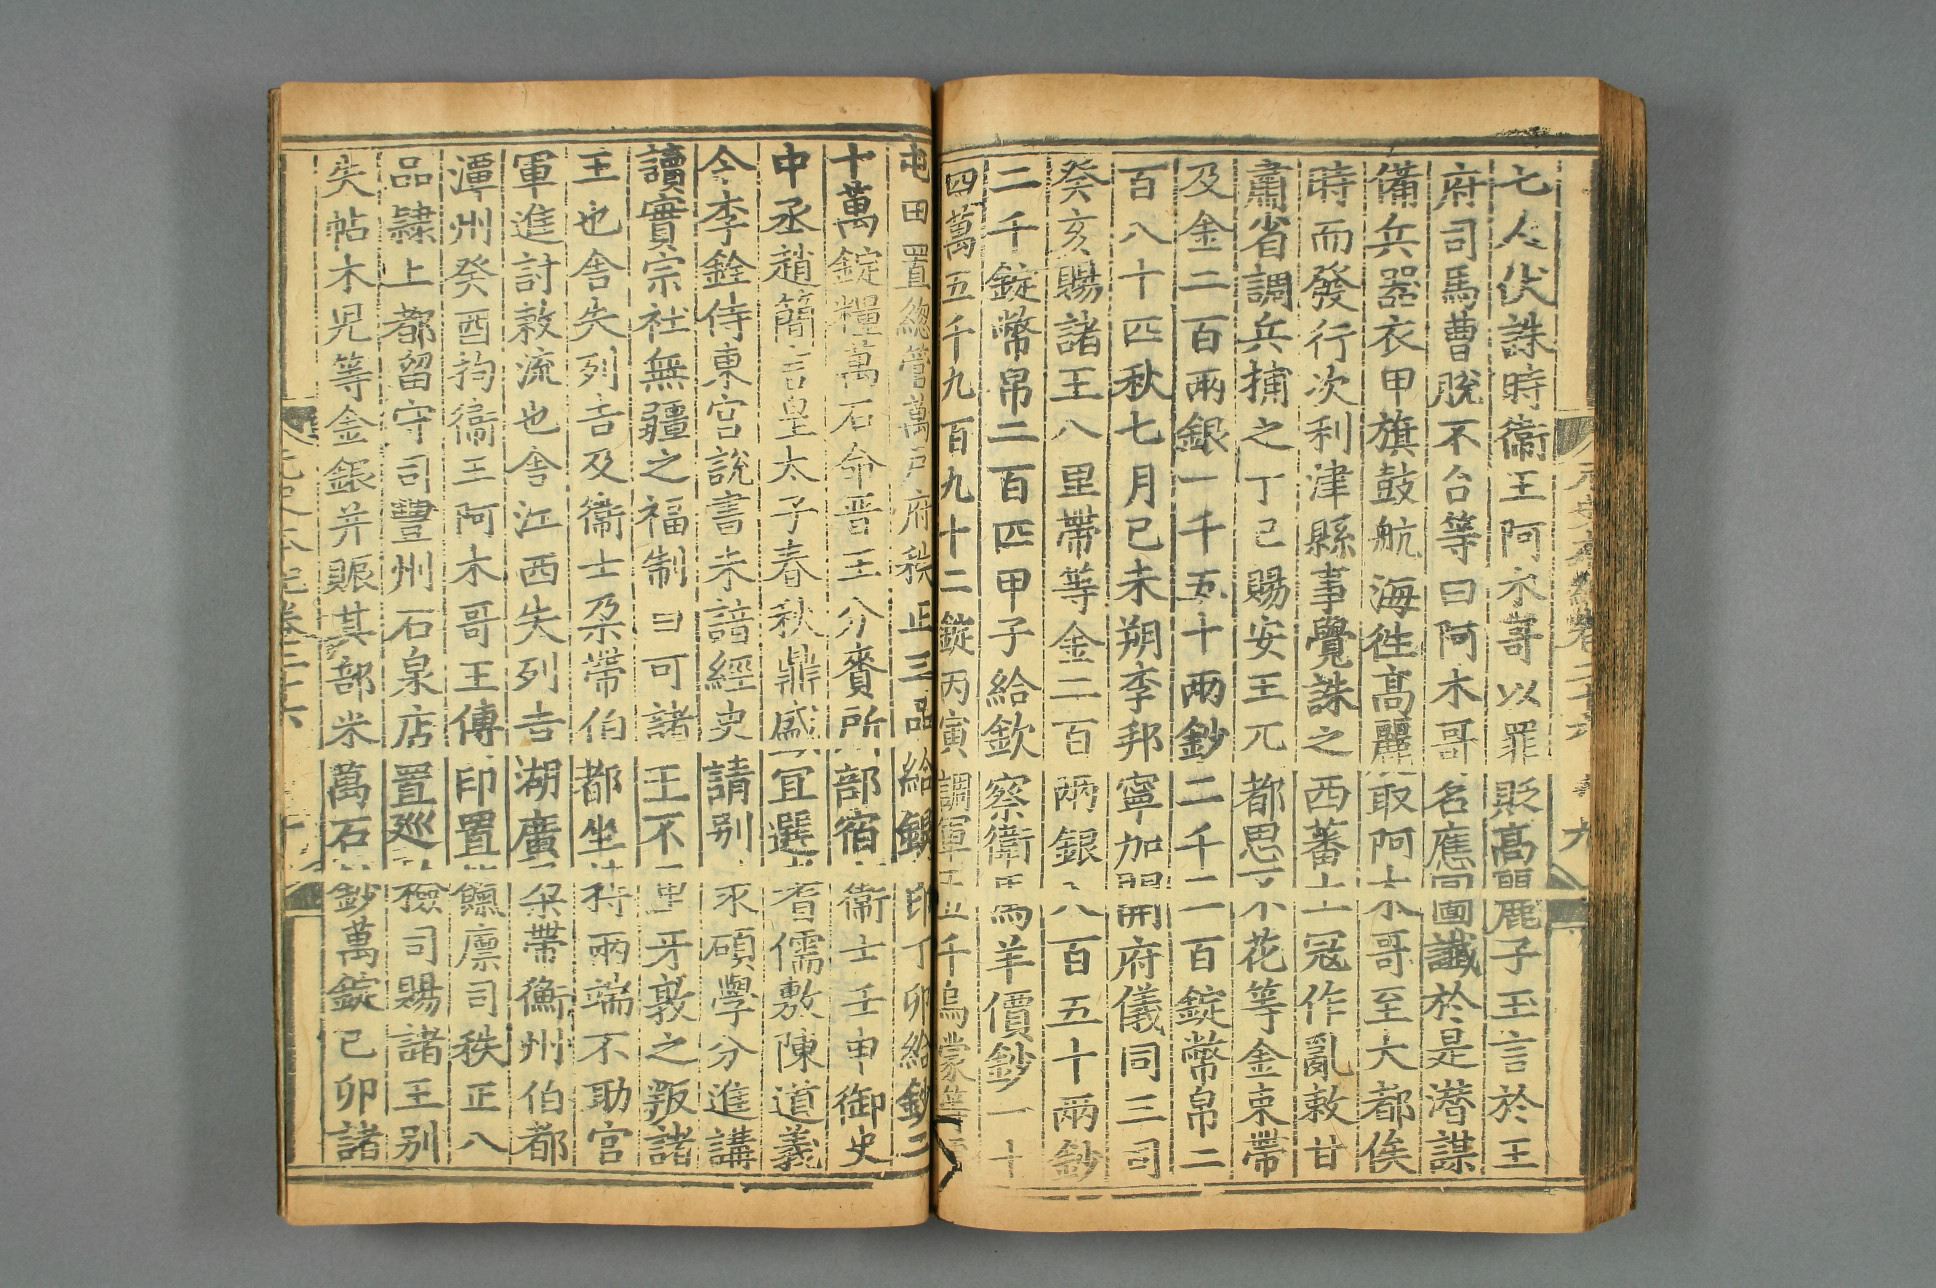 七人伏誅時衞王阿木哥以罪貶高麗子玉言於王
府司馬曹脫不台等曰阿木哥名應圖讖於是潜謀
備兵器衣甲旗鼓航海徃高麗取阿木哥至大都俟
時而發行次利津縣事覺誅之西蕃土冦作亂敕甘
肅省調兵捕之丁巳賜安王兀都思不花等金束帶
及金二百兩銀一千五十兩鈔二千二百錠幣帛二
百八十匹秋七月己未朔李邦寧加開府儀同三司
癸亥賜諸王八里帶等金二百兩銀八百五十兩鈔
二千錠幣帛二百匹甲子給欽察衞馬羊價鈔一十
四萬五千九百九十二錠丙寅調軍五千烏蒙等
屯田置緫管萬戶府秩正三品給銀印丁卯給鈔二
十萬錠糧萬石命晋王分賚所部宿衞士壬申御史
中丞趙簡言皇太子春秋鼎盛宜選耆儒敷陳道義
今李銓侍東宮說書未諳經史請别求碩學分進講
讀實宗社無疆之福制曰可諸王不里牙敦之叛諸
王也舍失列吉及衞士朶帶伯都坐持兩端不助宮
軍進討敕流也舍江西失列吉湖廣朶帶衡州伯都
潭州癸酉拘衞王阿木哥王傅印置餼廪司秩正八
品隸上都留守司豐州石泉店置廵檢司賜諸王别
失帖木兒等金銀并賑其部米萬石鈔萬錠己卯諸